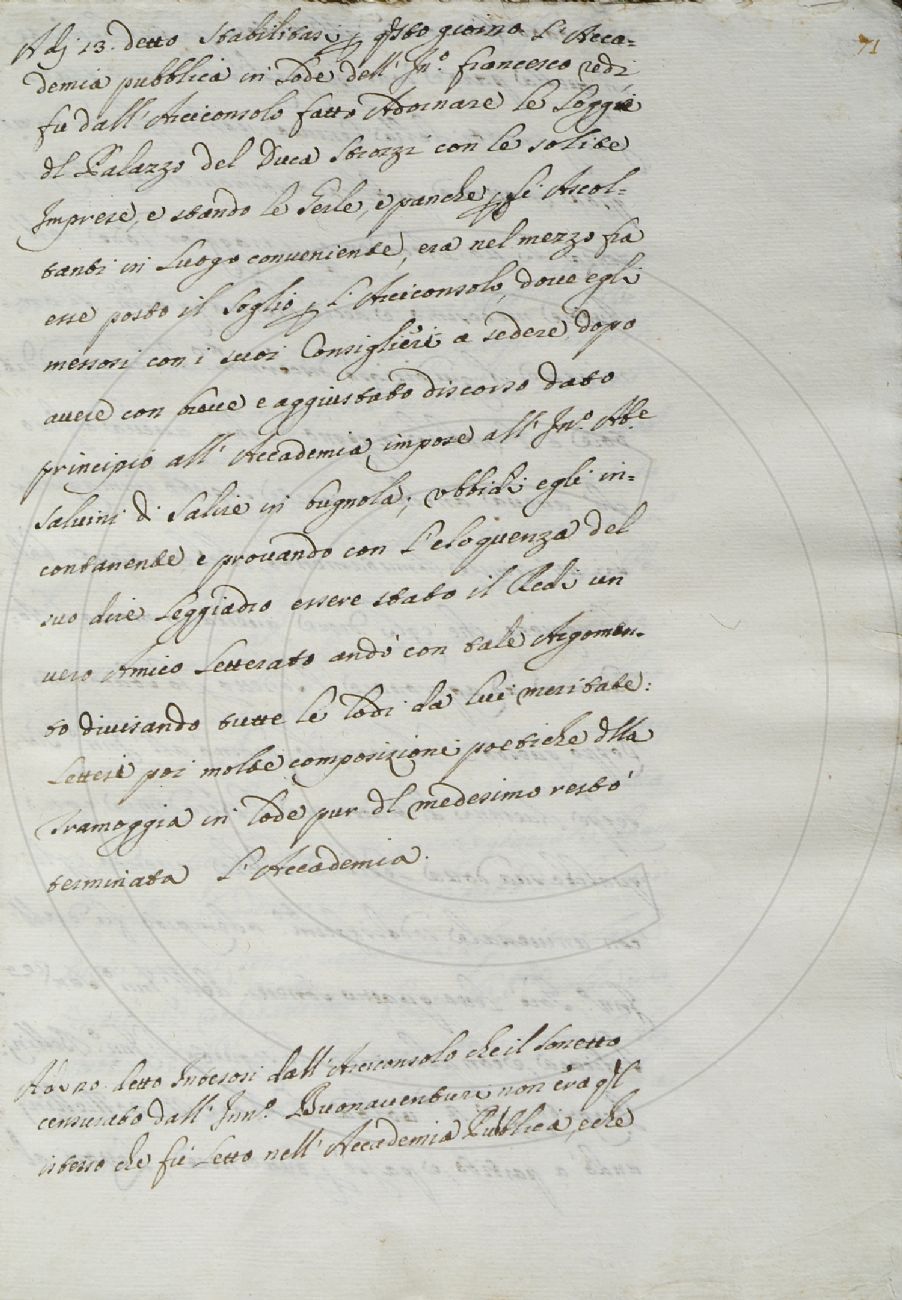 71
Adj 13. detto Stabilitasi p qsto giorno l'Acca=
demia pubblica in lode dell'Inn.º francesco redi
fù dall'Arciconsolo fatto Adornare le Loggie
dl Palazzo del Duca Strozzi con le solite
Imprese, e stando le Gerle, e panche p gli Ascol-
tanti in Luogo conveniente, era nel mezzo fra
esse posto il Soglio p l'Arciconsolo, dove egli
messosi con i suoi Consiglieri a sedere dopo
avere con breve e aggiustato discorso dato
principio all'Accademia, impose all'Inn.º Ab.e
Salvini di Salire in bugnola; ubbidì egli in=
contanente e provando con l'eloquenza del
suo dire Leggiadro essere stato il Redi un
vero Amico Letterato andò con tale Argomen-
to divisando tutte le lodi da lui meritate:
Lettesi poi molte composizioni poetiche dlla
Tramoggia in lode pur dl medesimo restò
terminata l'Accademia.
detto Intesosi dall'Arciconsolo che il Sonetto
censurato dall'Inn.º Buonaventuri non era ql
istesso che fù Letto nell'Accademia Pubblica, e che